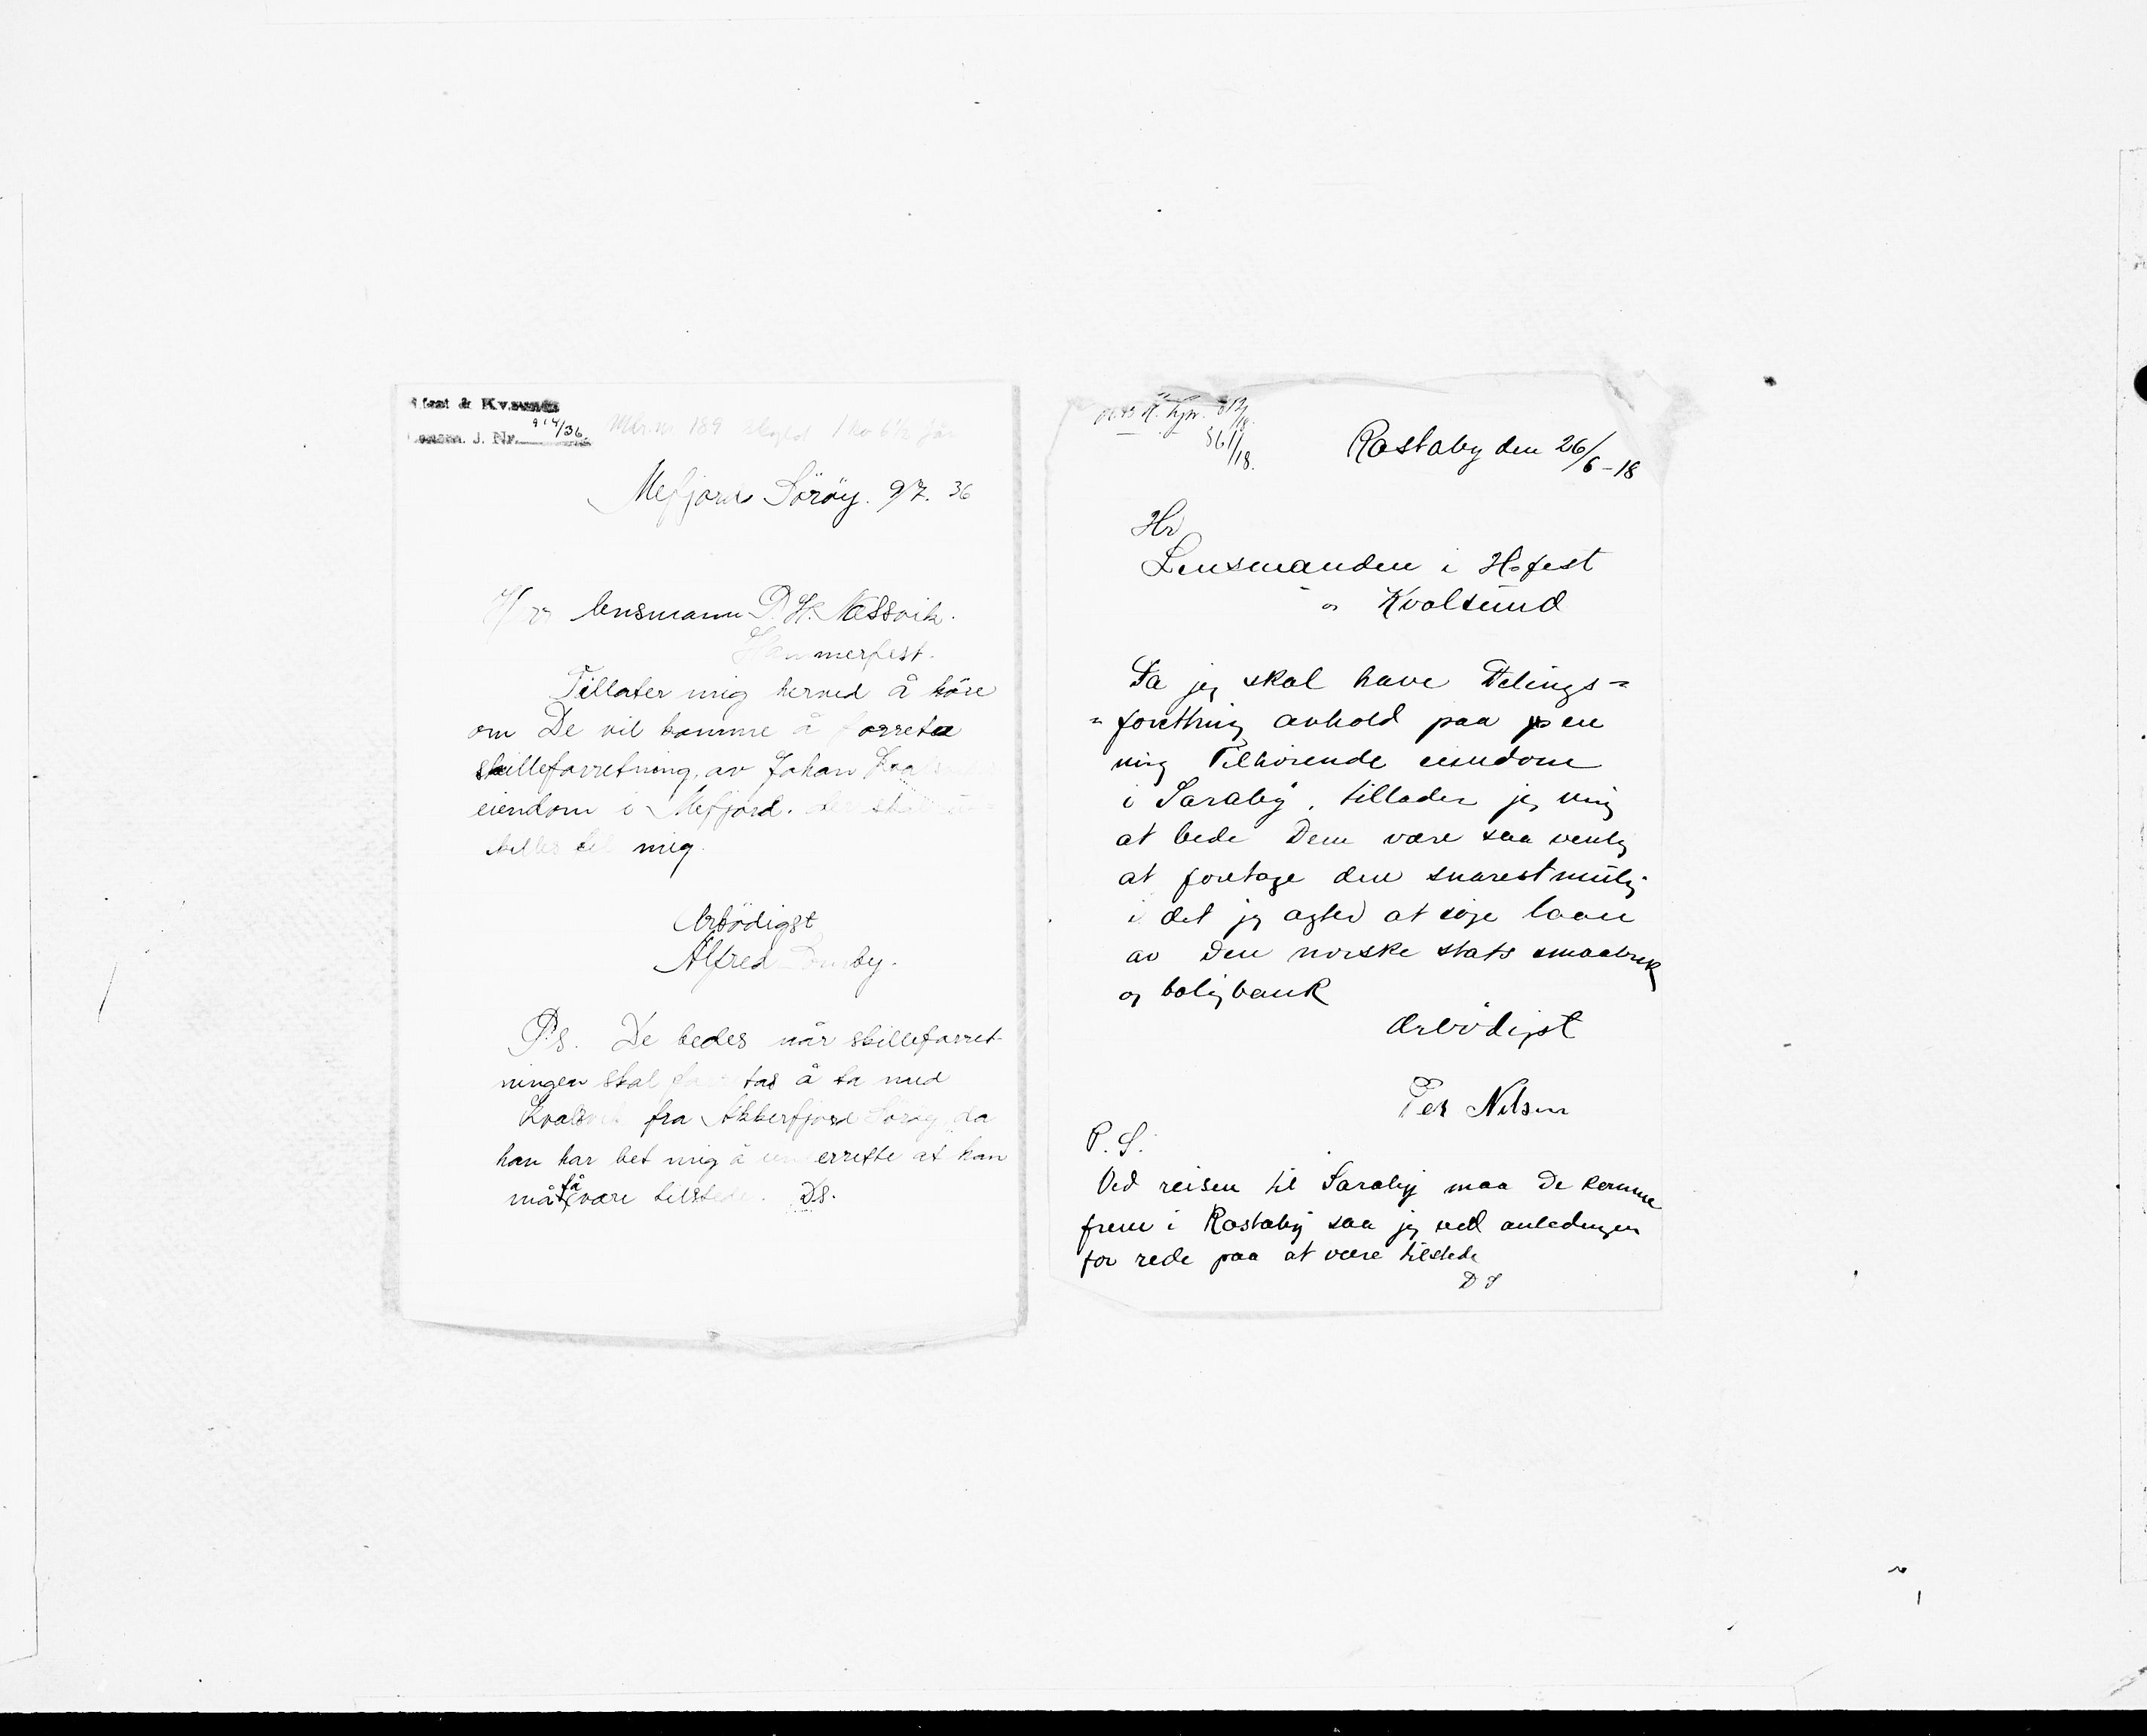 fest & Kv.sunds
Lensm. J. Nr. 914/36.
Mtr.nr 189 skyld
Mefjord Söröy. 9/7. 36
Herr lensmann P. H. Næssvik.
Hammerfest.
Tillater mig herved å höre
om De vil komme å forreta
skilleforretning, av Johan
eiendom i Mefjord. der skal
skilles til mig.
Ærbödigst
Alfred
P.s. De bedes når skilleforret-
ningen skal foretas å ta med
Kvalsvik fra Akkerfjord Söröy da
han har bet mig å underrette at han
må få være tilstede. Ds.
861/18.
Rastaby den 26/6-18
Hr
Lensmanden i H.fest
og Kvalsund
Da jeg skal have Delings=
=forrethnig avhold paa en
mig Tilhörende eiendom
i Saraby, tillader jeg mig
at bede Dem være saa venlig
at foretage den snarest mulig
i det jeg agter at söge laan
av Den norske stats smaabruk
og boligbank
Ærbödigst
Per Nilsen
P. S.
Ved reisen til Saraby maa De komme
frem i Rastaby saa jeg ved anledngen
for rede paa at være tilstede
D S